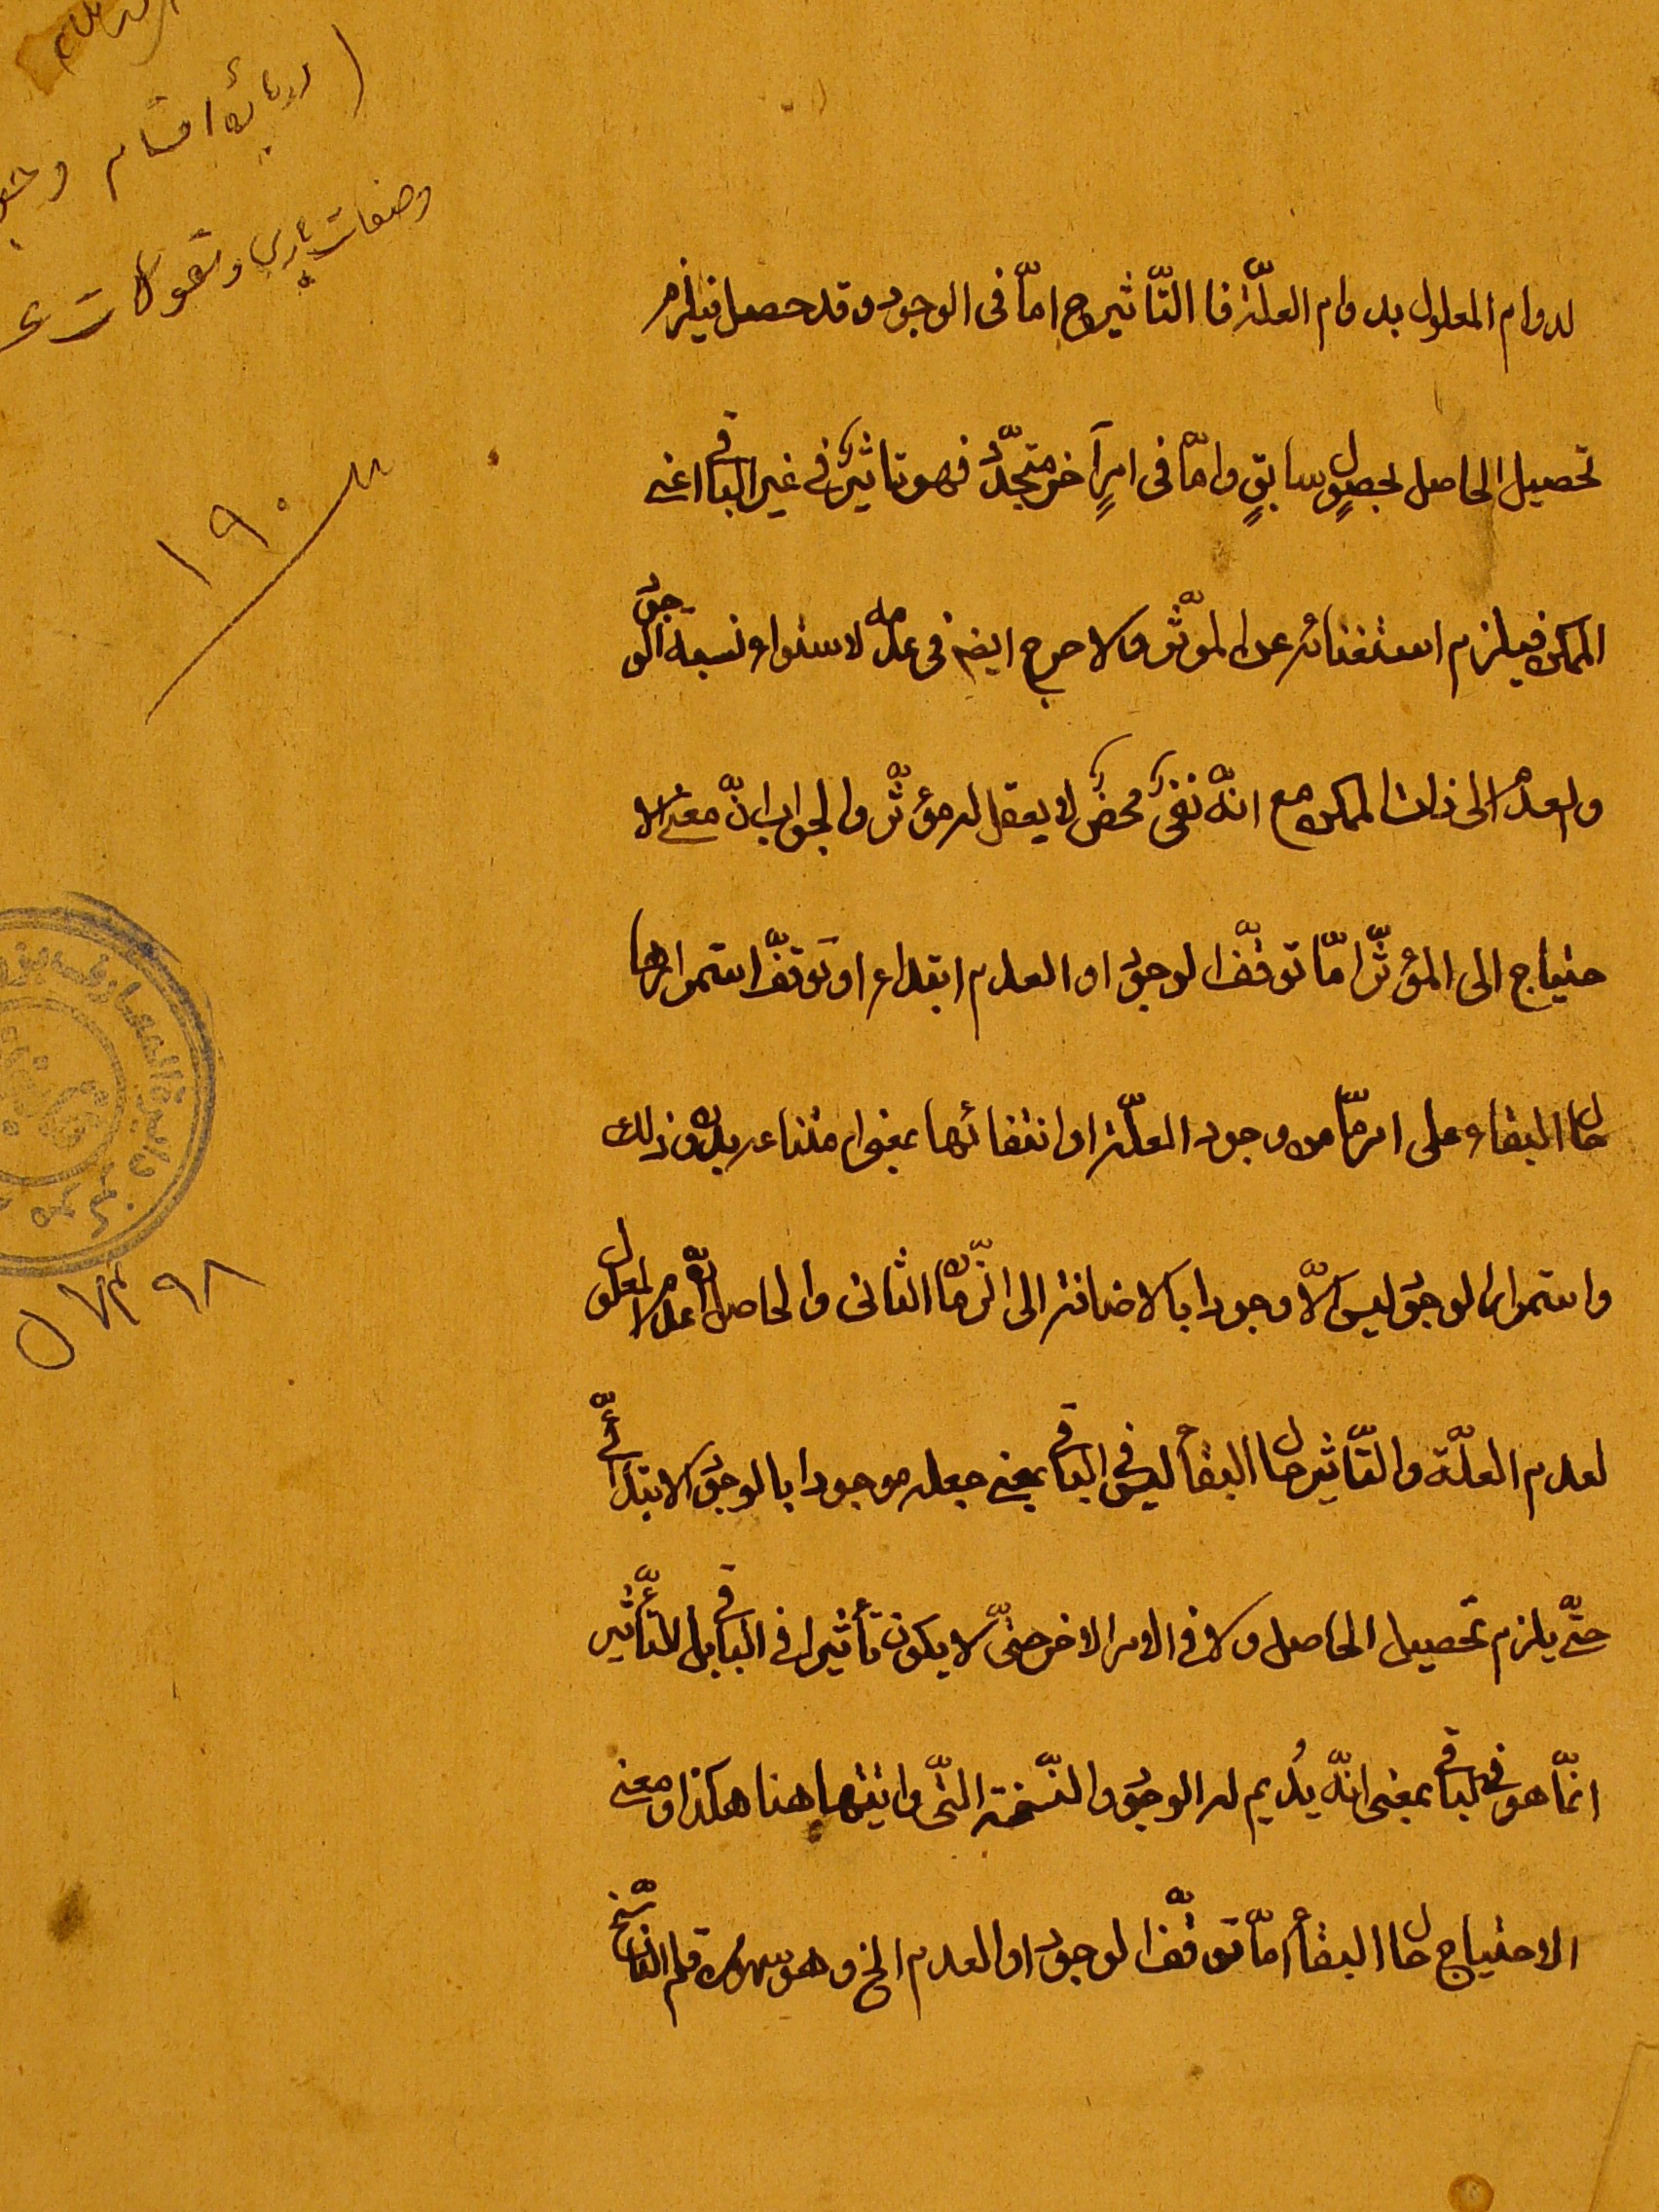 رساله اقسام
وصفات باری ومقولات
١٩٠
لدوام المعلول بدوام العلّة فا التّأثير ح امّا فى الوجود وقد حصل فيلزم
تحصيل الحاصل بحصولٍ سابقٍ وامّا فى امرٍ آخر متجدّد فهو تاثيرٌ فى غير الباقى اعنى
الممكن فيلزم استغنائه عن المؤثّر ولا حرج ايضا فى عدمه لاستواء نسبة الوجود
والعدم الى ذات الممكن مع انّه نفىٌ محضٌ لا يعقل له مؤثّر والجواب انّ معنى الا
حتياج الى المؤثّر امّا توقّف الوجود او العدم ابتداء او توقّف استمرارهما
حال البقاء على امر مّا من وجود العلّة او انتفائها بمعنى امتناعه بدون ذلك
واستمرار الوجود ليس الّا وجودا بالاضافة الى الزّمان الثانى والحاصل انّه عدم المعلول
لعدم العلّة والتّأثير حال البقأ ليس فى الباقى بمعنى جعله موجودا بالوجود الابتدائىّ
حتّى يلزم تحصيل الحاصل ولا فى الامر الاخر حتّى لا يكون تأثيرا فى الباقى بل التّأثير
انّما هو فى الباقى بمعنى انّه يُديم له الوجود والنّسخة الّتى وانيتها هنا هكذا ومعنى
الاحتياج حال البقأ امّا توقّف الوجود او العدم الخ وهو سهو من قلم النّاسخ
دايرة المعارف
٥٧٣٩٨